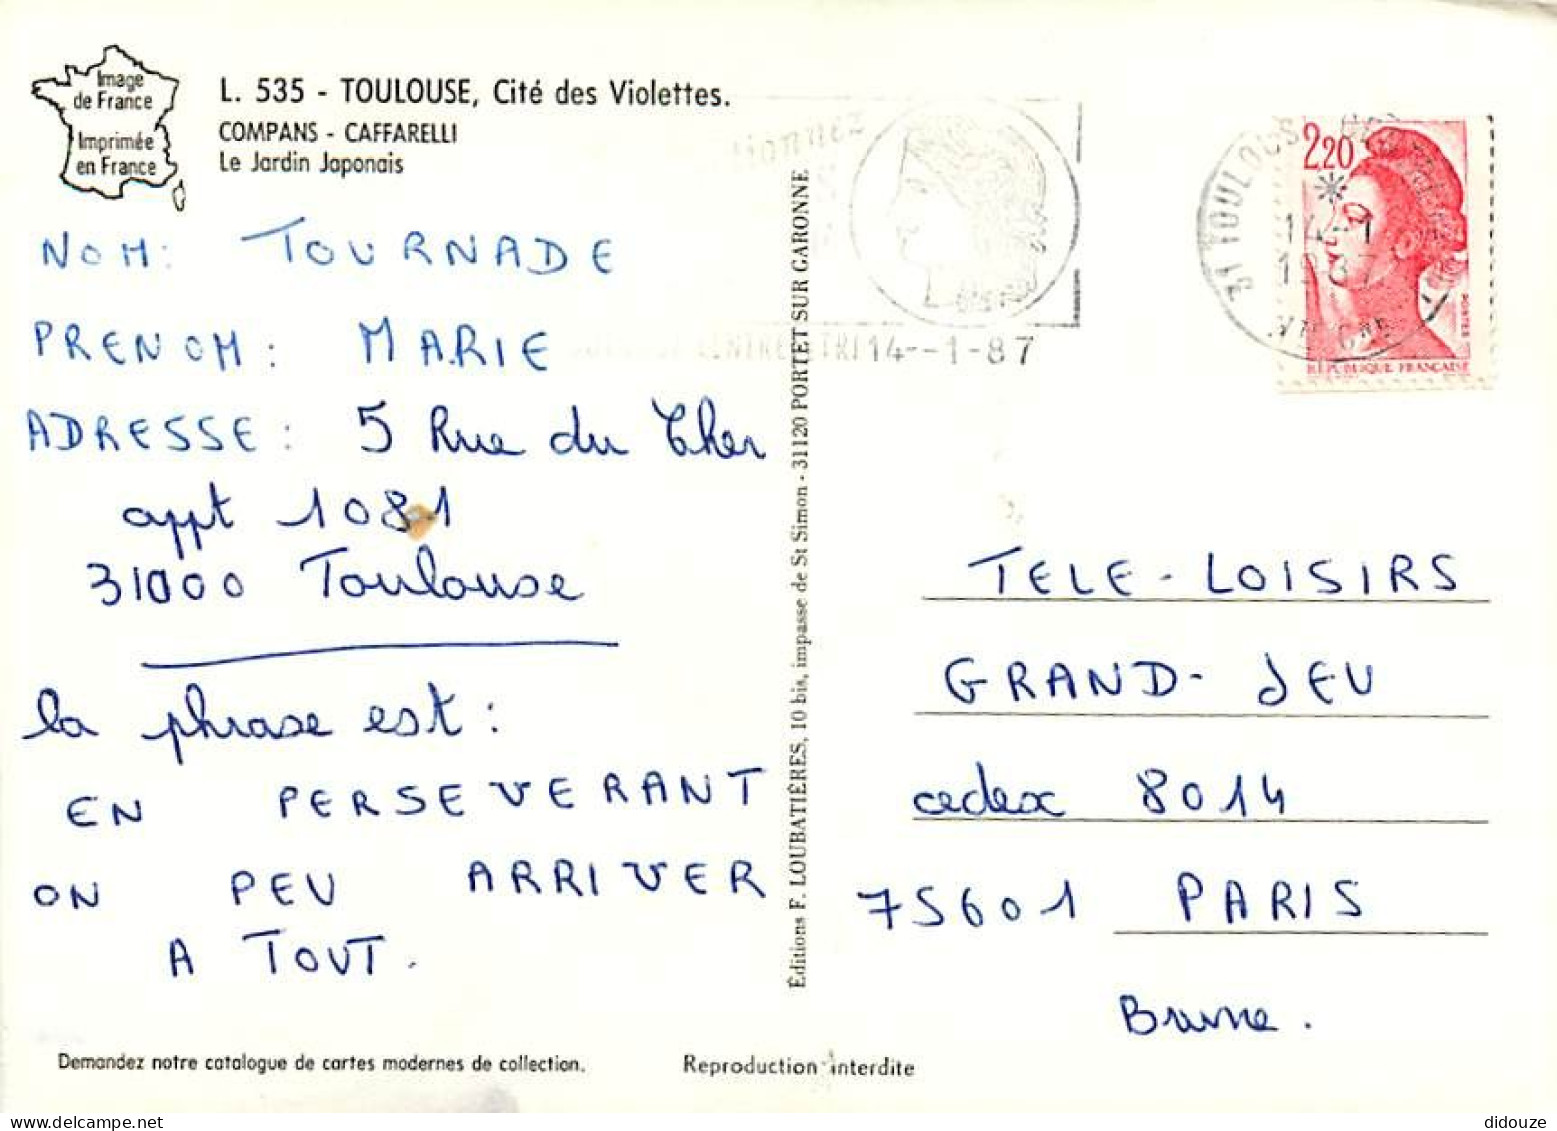 Image
de France
Imprimée
en France
L. 535 - TOULOUSE, Cité des Violettes.
COMPANS - CAFFARELLI
Le Jardin Japonais
NOM: TOURNADE
PRENOM: MARIE
ADRESSE: 5 Rue du Cher
appt 1081
31000 Toulouse
la phrase est:
EN PERSEVERANT
ON PEU ARRIVER
A TOUT.
Demandez notre catalogue de cartes modernes de collection.
Reproduction interdite
Éditions F. LOUBATIÈRES, 10 bis, impasse de St Simon - 31120 PORTET SUR GARONNE
CENTRE TRI 14--1-87
31 TOULOUSE
14-1
1987
2,20
POSTES
RÉPUBLIQUE FRANÇAISE
TELE-LOISIRS
GRAND-JEU
cedex 8014
75601 PARIS
Brune.
didouze